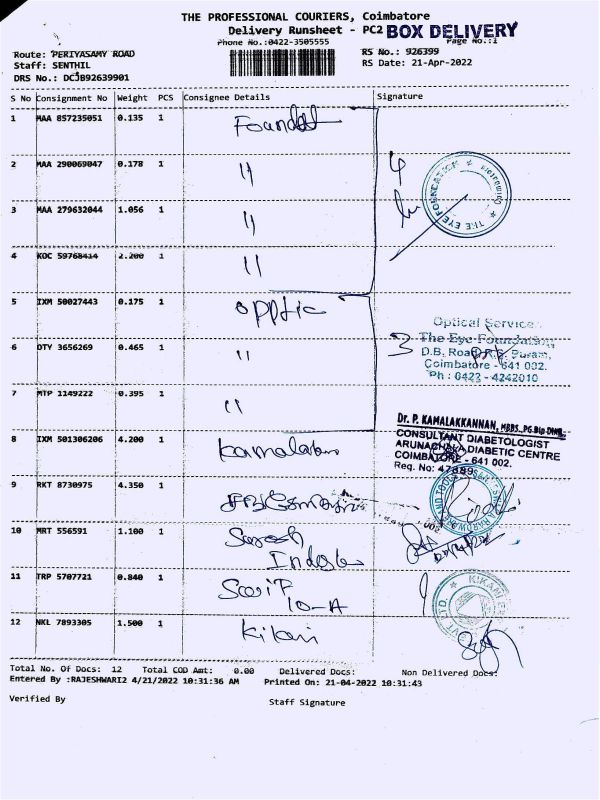 THE PROFESSIONAL COURIERS, Coimbatore
Delivery Runsheet - PC2 BOX DELIVERY
Phone No.:0422-3505555 Page No.:1
Route: PERIYASAMY ROAD RS No.: 926399
Staff: SENTHIL RS Date: 21-Apr-2022
DRS No.: DCJB92639901
S No Consignment No Weight PCS Consignee Details Signature
1 MAA 857235051 0.135 1
2 MAA 290069047 0.178 1 "
3 MAA 279632044 1.056 1 "
4 KOC 59768414 2.200 1 "
THE EYE FOUNDATION
5 IXM 50027443 0.175 1 opptic
Optical Service
The Eye Foundation
6 DTY 3656269 0.465 1 " 3
D.B. Road, R.S. Puram,
Coimbatore - 641 002.
Ph : 0422 - 4242010
7 MTP 1149222 0.395 1 "
Dr. P. KAMALAKKANNAN, MBBS., PG.Dip.Diab.,
CONSULTANT DIABETOLOGIST
8 IXM 501306206 4.200 1
ARUNACHALA DIABETIC CENTRE
COIMBATORE - 641 002.
Reg. No: 47889
9 RKT 8730975 4.350 1
10 MRT 556591 1.100 1
11 TRP 5707721 0.840 1
10-A
12 NKL 7893305 1.500 1 Kikani
Total No. Of Docs: 12 Total COD Amt: 0.00 Delivered Docs: Non Delivered Docs:
Entered By :RAJESHWARI2 4/21/2022 10:31:36 AM Printed On: 21-04-2022 10:31:43
Verified By Staff Signature